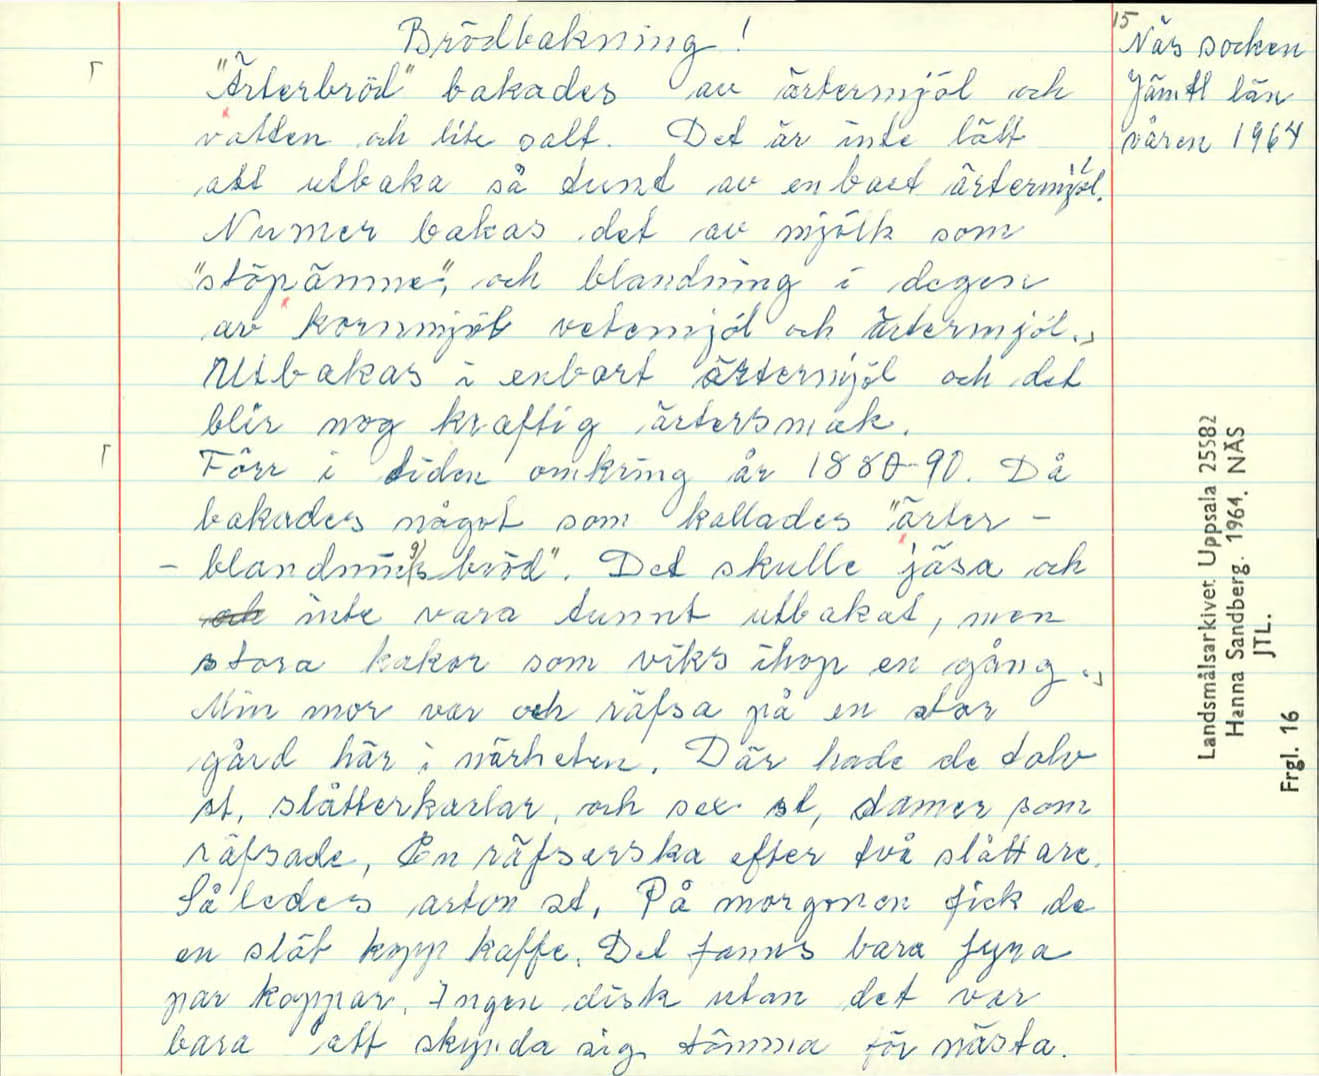 Brödbakning!
"Ärterbröd" bakades av ärtermjöl och
vatten och lite salt. Det är inte lätt
att utbaka så tunt av enbart ärtermjöl.
Numer bakas det av mjölk som
"stöpämne", och blandning i degen
av kornmjöl vetemjöl och ärtermjöl.
Utbakas i enbart ärtermjöl och det
blir nog kraftig ärtersmak.
Förr i tiden omkring år 1880-90. Då
bakades något som kallades "ärter-
- blandningsbröd". Det skulle jäsa och
och inte vara tunnt utbakat, men
stora kakor som viks ihop en gång.
Min mor var och räfsa på en stor
gård här i närheten. Där hade de tolv
st, slåtterkarlar, och sex st, damer som
räfsade, En räfserska efter två slåttare.
Således arton st. På morgonen fick de
en slät kopp kaffe. Det fanns bara fyra
par koppar. Ingen disk utan det var
bara att skynda sig tömma för nästa.
15
Näs socken
Jämtl län
våren 1964
Landsmålsarkivet Uppsala 25582
Hanna Sandberg. 1964. NÄS
JTL.
Frgl. 16